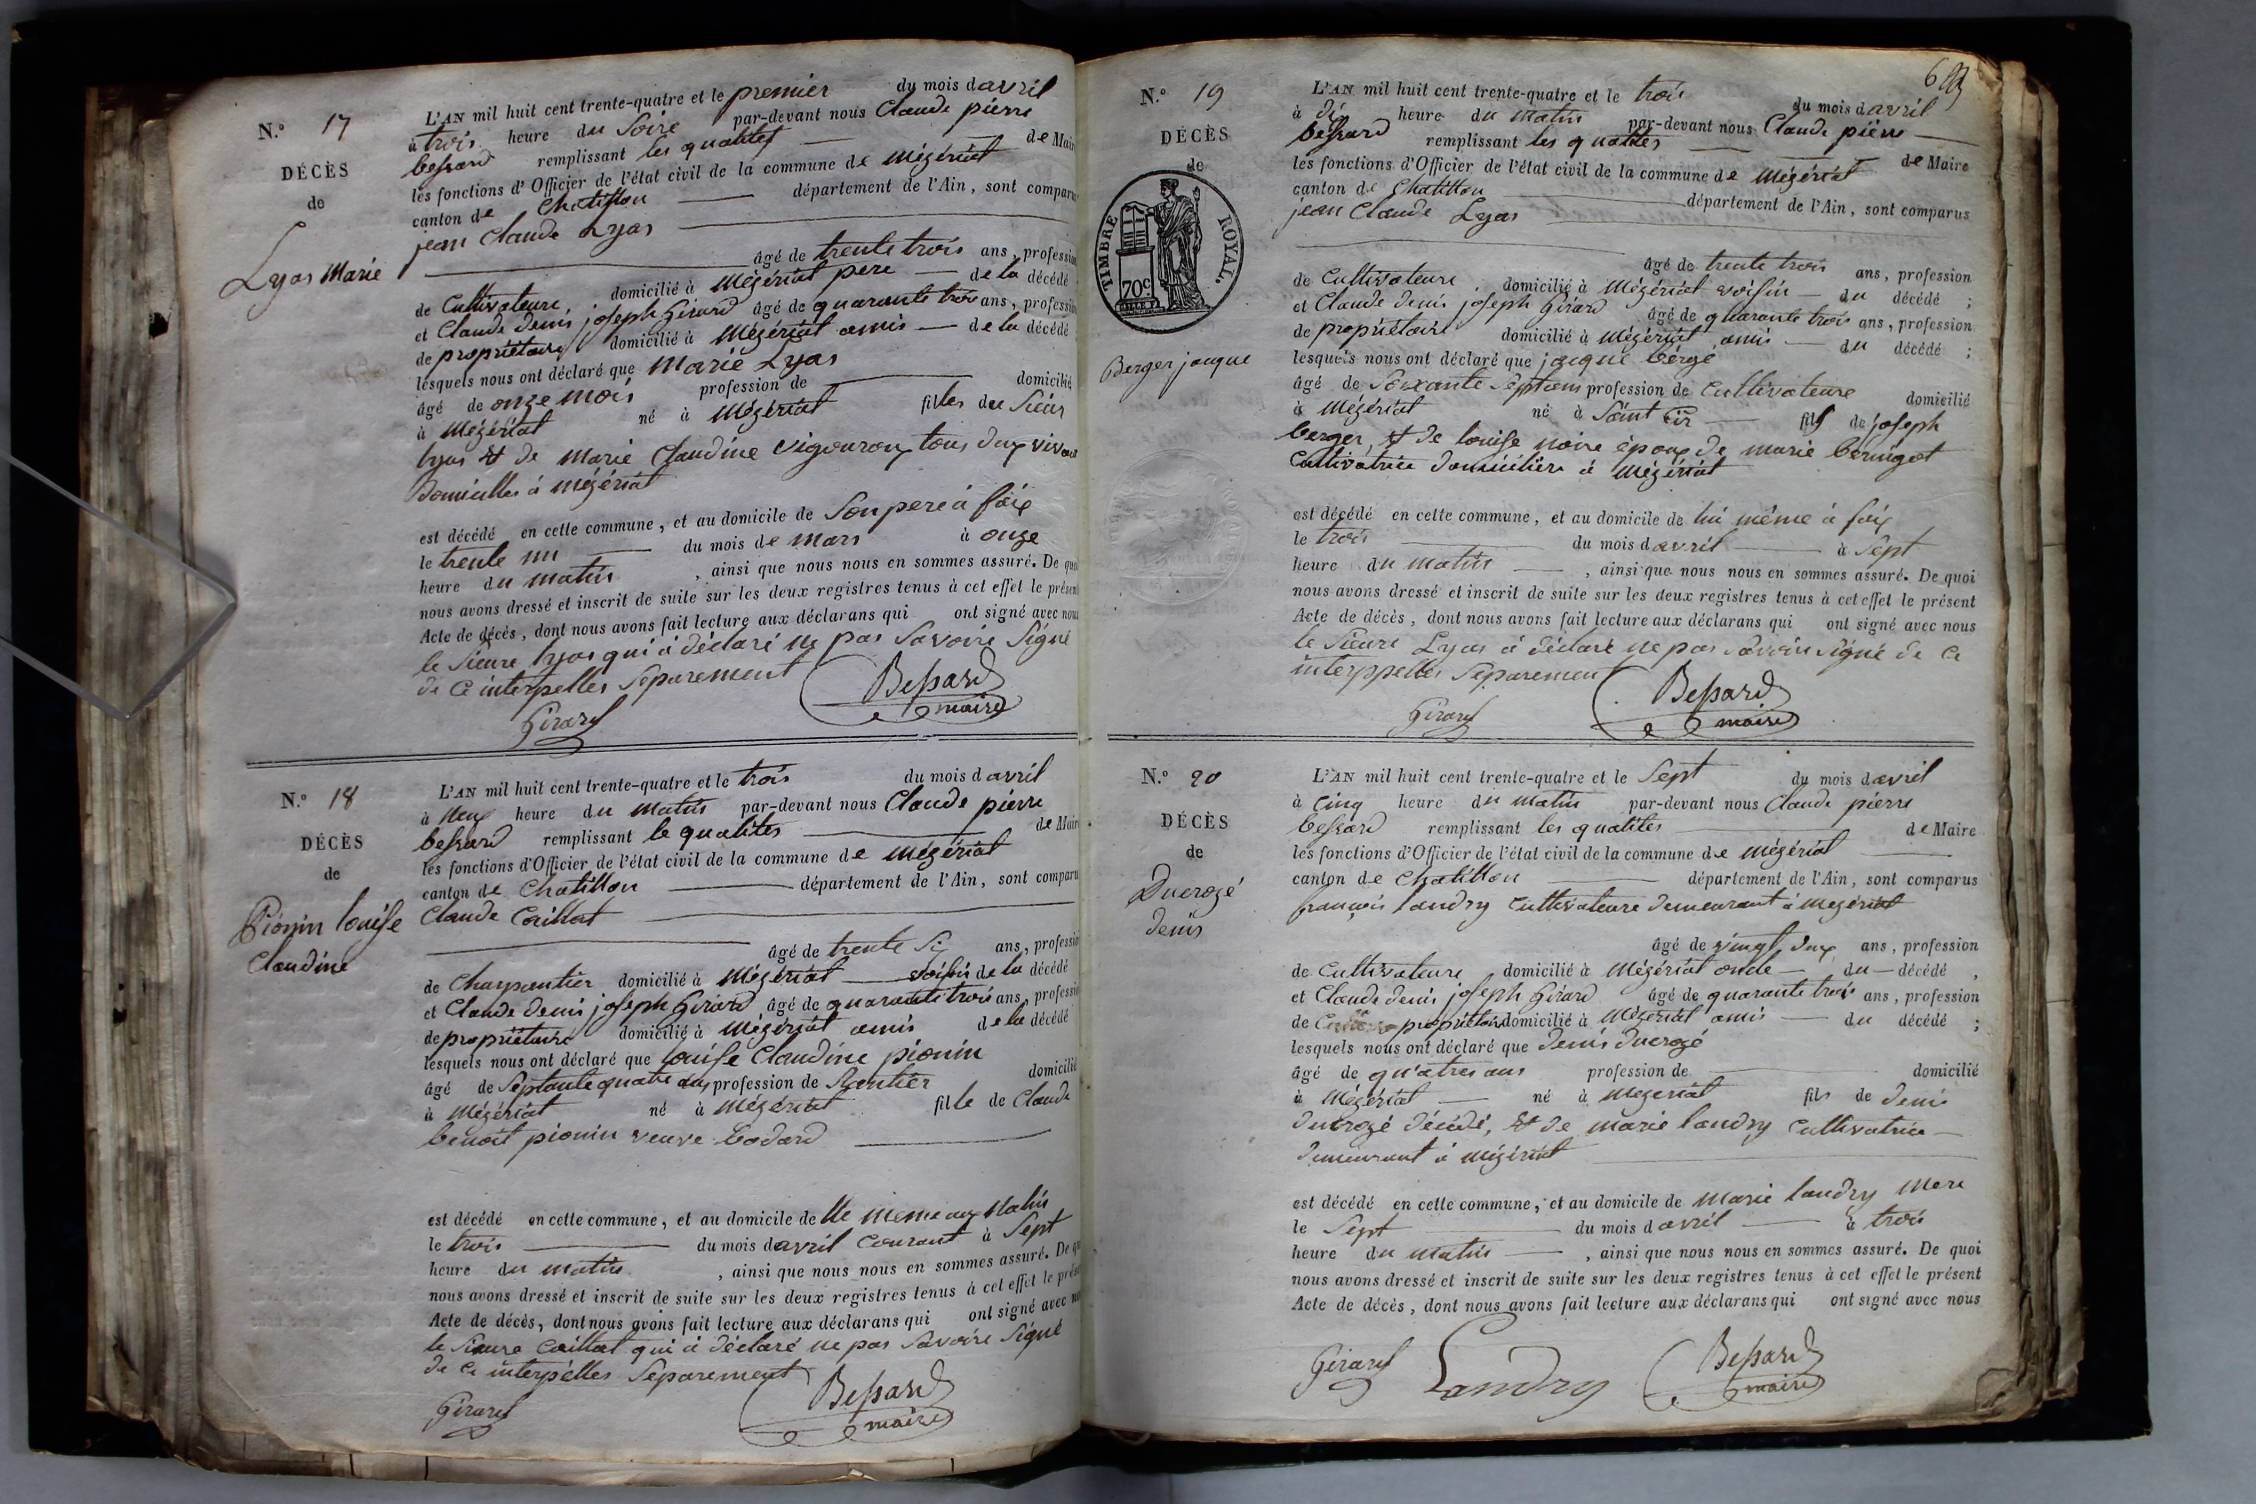 N.º 17
DÉCÈS
de
Lyas Marie
L'AN mil huit cent trente-quatre et le premier du mois d avril
à trois heure du Soire par-devant nous Claude pierre
bessard remplissant les qualités de Maire
les fonctions d'Officier de l'état civil de la commune de Mézériat
canton de Chatillon département de l'Ain, sont comparus
jean Claude Lyas
âgé de trente trois ans, profession
de Cultivateure, domicilié à Mézériat pere de la décédé
et Claude denis joseph Girard âgé de quarante trois ans, profession
de propriétaire domicilié à Mézériat amis de la décédé
lesquels nous ont déclaré que Marie Lyas
âgé de onze mois profession de domicilié
à Mézériat né à Mézériat filles du Sieur
lyas et de Marie Claudine Vigouroux tous deux vivant
Domicilles à mézériat
est décédé en cette commune, et au domicile de Son pere à foix
le trente un du mois de mars à onze
heure du matin, ainsi que nous nous en sommes assuré. De quoi
nous avons dressé et inscrit de suite sur les deux registres tenus à cet effet le présent
Acte de décès, dont nous avons fait lecture aux déclarans qui ont signé avec nous
le Sieure lyas qui à déclaré ne pas Savoire Signé
de Ce interpelles Séparement
Girard
Bessard
maire
N.º 18
DÉCÈS
de
Pionin louise
Claudine
L'AN mil huit cent trente-quatre et le trois du mois d avril
à Neuf heure du matin par-devant nous Claude pierre
bessard remplissant le qualités de Maire
les fonctions d'Officier de l'état civil de la commune de Mézériat
canton de Chatillon département de l'Ain, sont comparus
Claude Caillat
âgé de trente Six ans, profession
de Charpantier domicilié à Mézériat voisin de la décédé
et Claude denis joseph Girard âgé de quarante trois ans, profession
de propriétaire domicilié à Mézériat amis de la décédé
lesquels nous ont déclaré que louise Claudine pionin
âgé de Septante quatre ans profession de Rentier domicilié
à Mézériat né à Mézériat fille de Claude
benoit pionin veuve
est décédé en cette commune, et au domicile de lle meme aux
le trois du mois d avril Courant à Sept
heure du matin, ainsi que nous nous en sommes assuré. De quoi
nous avons dressé et inscrit de suite sur les deux registres tenus à cet effet le présent
Acte de décès, dont nous avons fait lecture aux déclarans qui ont signé avec nous
le Sieure Caillat qui à déclaré ne pas Savoire Signé
de Ce interpelles Séparement
Girard
Bessard
maire
N.º 19
DÉCÈS
de
TIMBRE ROYAL.
70c
Berger jaque
L'AN mil huit cent trente-quatre et le trois du mois d avril
à dix heure du matin par-devant nous Claude pierre
bessard remplissant les qualités de Maire
les fonctions d'Officier de l'état civil de la commune de Mézériat
canton de Chatillon département de l'Ain, sont comparus
jean Claude Lyas
âgé de trente trois ans, profession
de Cultivateure, domicilié à Mézériat voisin du décédé ;
et Claude denis joseph Girard âgé de quarante trois ans, profession
de propriétaire domicilié à Mézériat amis du décédé ;
lesquels nous ont déclaré que jaque bergé
âgé de Soixante Sept ans profession de Cultivateure domicilié
à Mézériat né à Saint Cir fils de joseph
berger, et de louise noire époux de marie
Cultivatrice domicilière à Mézériat
est décédé en cette commune, et au domicile de lui même à foix
le trois du mois d avril à Sept
heure du matin, ainsi que nous nous en sommes assuré. De quoi
nous avons dressé et inscrit de suite sur les deux registres tenus à cet effet le présent
Acte de décès, dont nous avons fait lecture aux déclarans qui ont signé avec nous
le Sieure Lyas à déclaré ne pas Savoir Signé de Ce
interppelles Séparement
Girard
Bessard
maire
N.º 20
DÉCÈS
de
Ducrozé
denis
L'AN mil huit cent trente-quatre et le Sept du mois d avril
à Cinq heure du matin par-devant nous Claude pierre
bessard remplissant les qualités de Maire
les fonctions d'Officier de l'état civil de la commune de Mézériat
canton de Chatillon département de l'Ain, sont comparus
françois landry Cultivateure demeurant à mézériat
âgé de vingt deux ans, profession
de Cultivateure domicilié à Mézériat oncle du décédé,
et Claude denis joseph Girard âgé de quarante trois ans, profession
de propriétaire domicilié à Mézériat amis du décédé ;
lesquels nous ont déclaré que denis ducrozé
âgé de quatres ans profession de domicilié
à Mézériat né à Mézériat fils de denis
ducrozé décédé, et de marie landry Cultivatrice
demeurant à mézériat
est décédé en cette commune, et au domicile de marie landry mere
le Sept du mois d avril à trois
heure du matin, ainsi que nous nous en sommes assuré. De quoi
nous avons dressé et inscrit de suite sur les deux registres tenus à cet effet le présent
Acte de décès, dont nous avons fait lecture aux déclarans qui ont signé avec nous
Girard
Landry
Bessard
maire